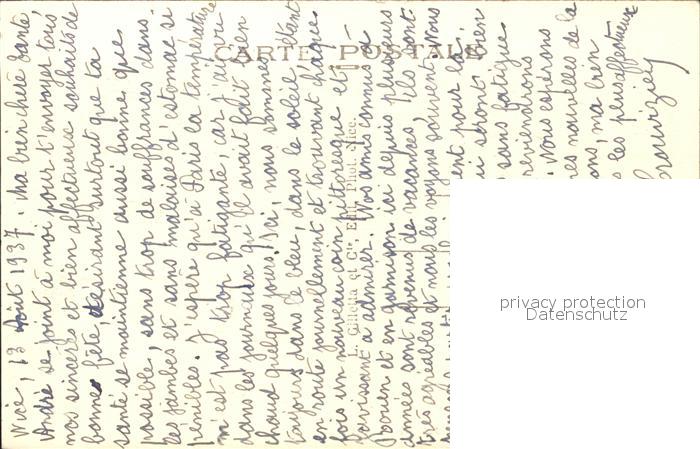 Nice, 13 Août 1937. Ma bien chère tante,
André se joint à moi pour t'envoyer tous
nos sincères et bien affectueux souhaits de
bonne fête, désirant surtout que ta
santé se maintienne aussi bonne que
possible, sans trop de souffrances dans
les jambes et sans malaises d'estomac si
pénibles. J'espère qu'à Paris la température
n'est pas trop fatigante, car j'ai vu
dans les journaux qu'il avait fait bien
chaud quelques jours. Ici, nous sommes
toujours dans le bleu, dans le soleil, étant
en route journellement et trouvant chaque
fois un nouveau coin pittoresque et
ravissant à admirer. Nos amis connus à
Rouen et en garnison ici depuis plusieurs
années sont revenus de vacances, ils sont
très agréables et nous les voyons souvent. Nous
ent pour la
ui seront bien
sans fatigue
reviendrons
Nous espérons
nes nouvelles de la
ons, ma bien
les plus affectueux
CARTE POSTALE
L. Gilletta et Cie, Edit. Phot. Nice.
privacy protection
Datenschutz